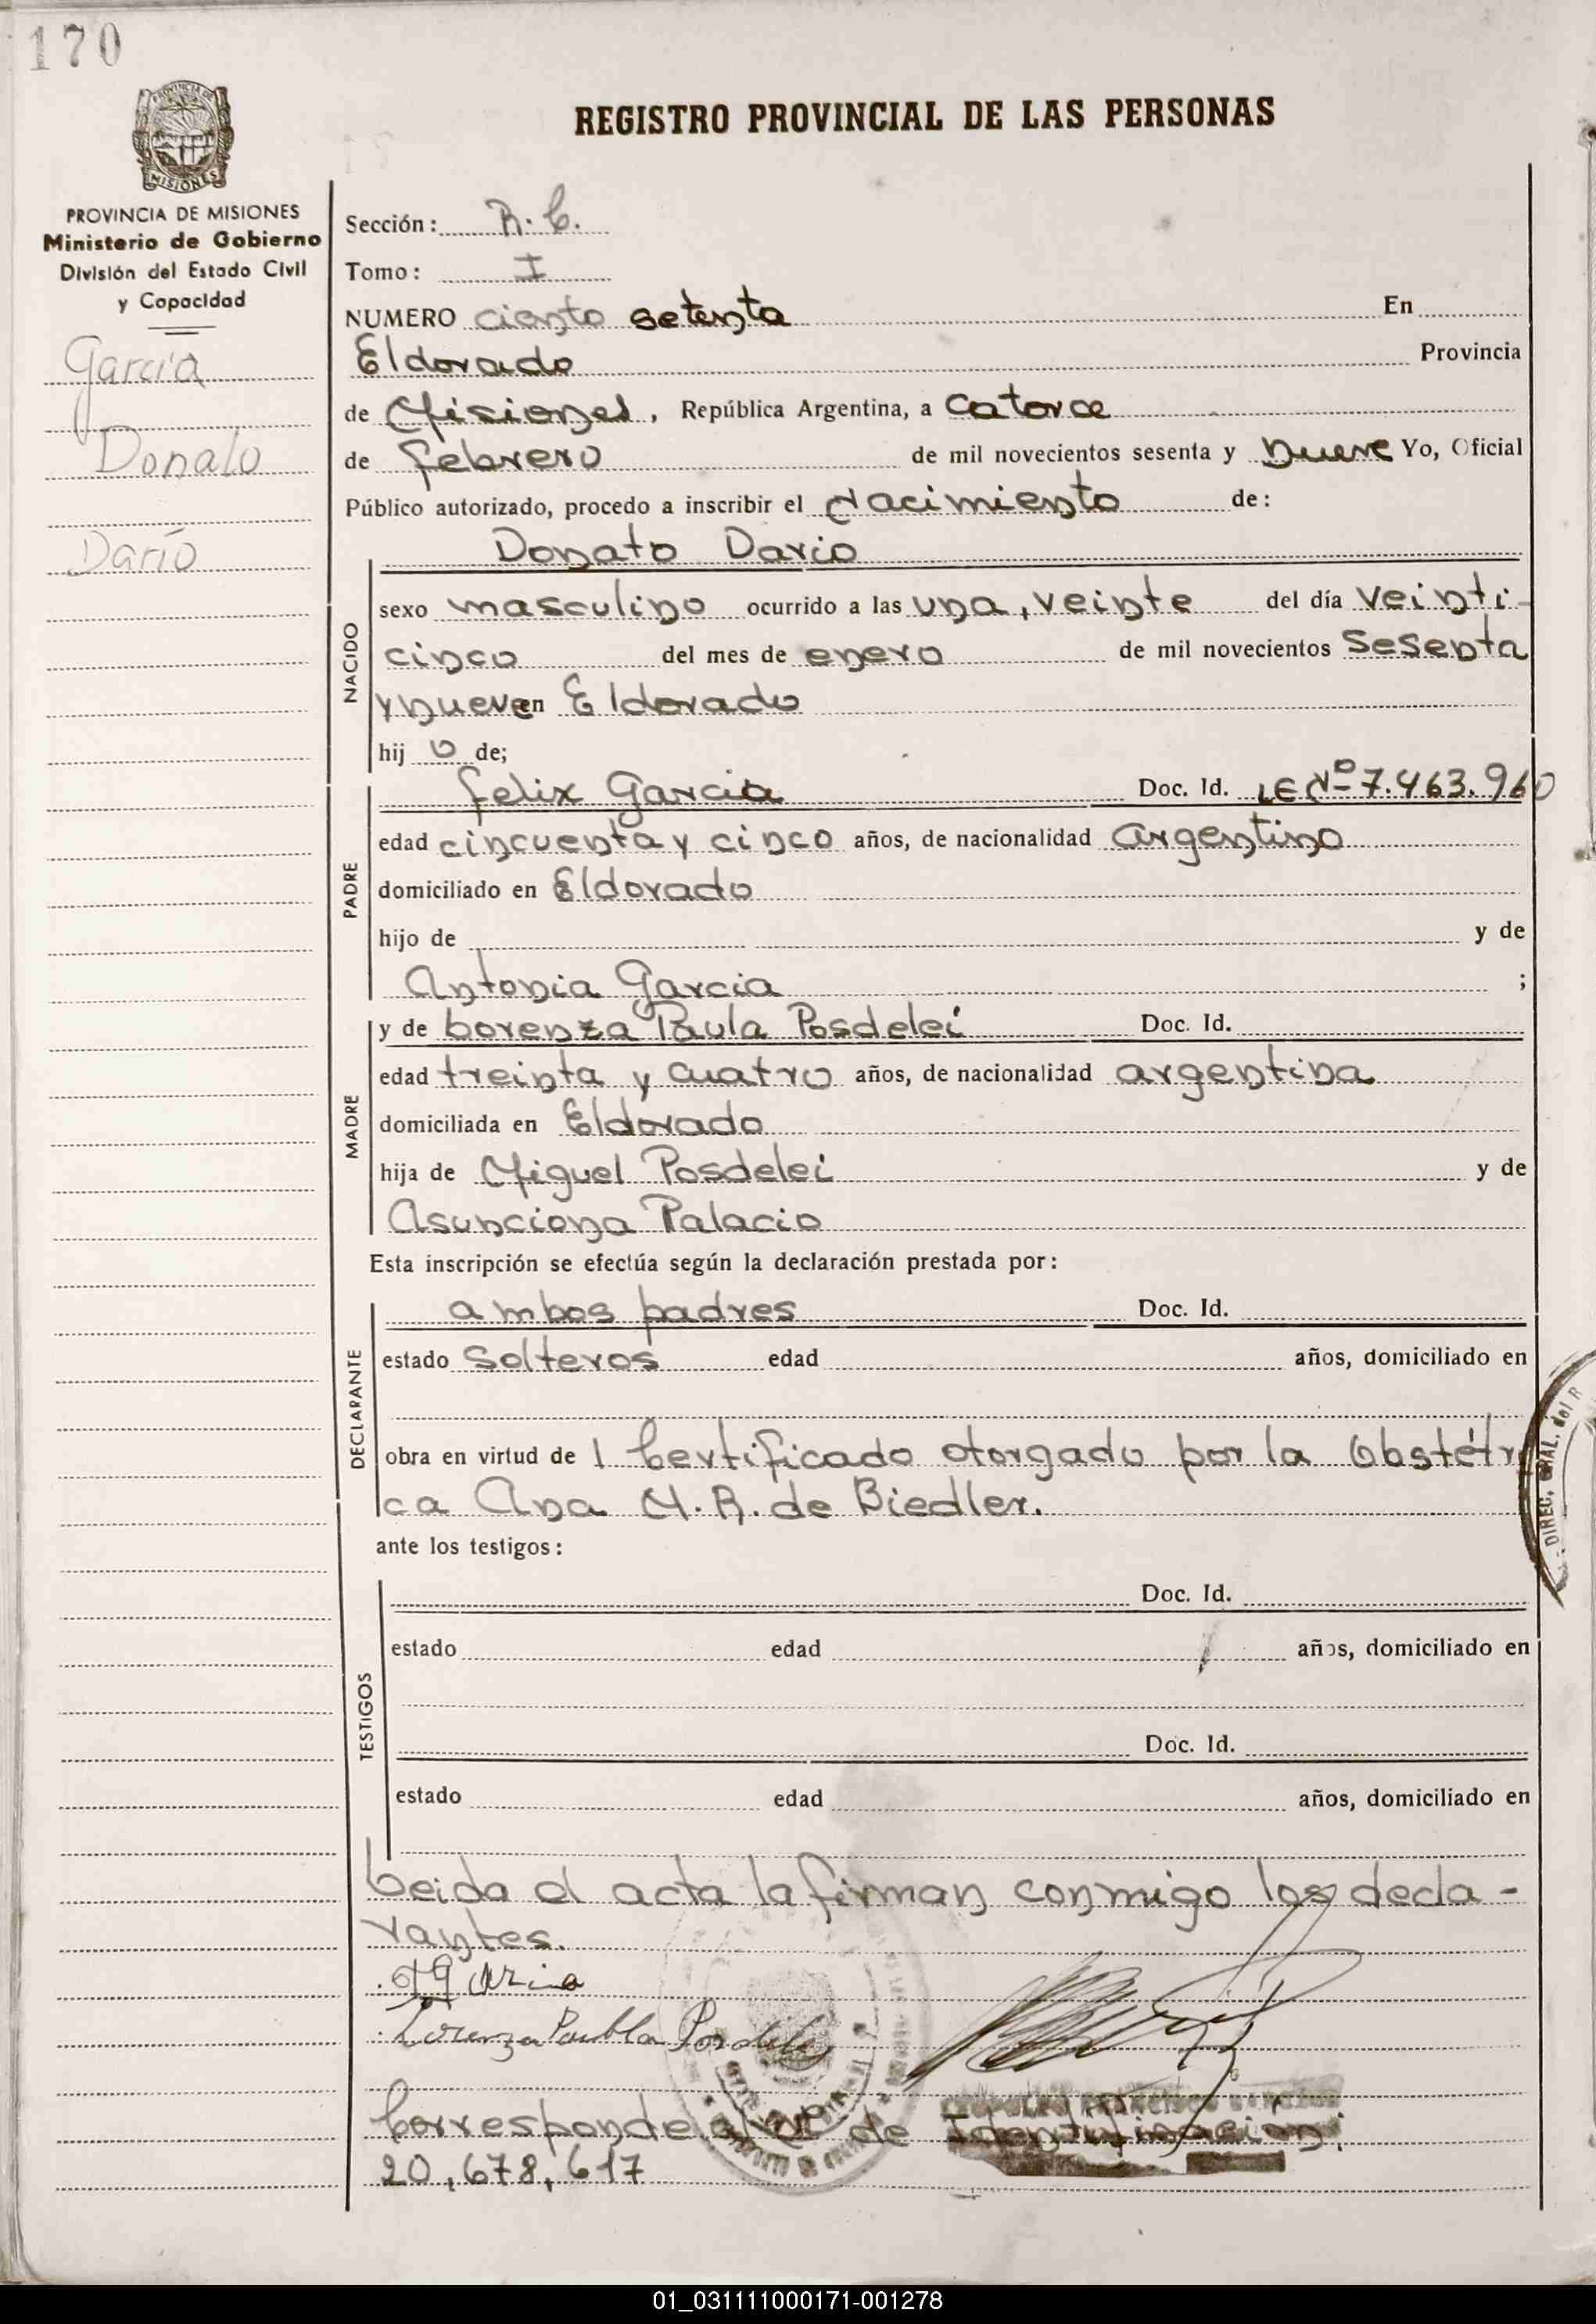 170
PROVINCIA DE
MISIONES
REGISTRO PROVINCIAL DE LAS PERSONAS
PROVINCIA DE MISIONES
Ministerio de Gobierno
División del Estado Civil
y Capacidad
García
Donato
Darío
Sección: R. C.
Tomo: I
NUMERO ciento setenta En
Eldorado Provincia
de Misiones, República Argentina, a Catorce
de febrero de mil novecientos sesenta y nueve Yo, Oficial
Público autorizado, procedo a inscribir el Nacimiento de:
Donato Dario
NACIDO
sexo masculino ocurrido a las una, veinte del día veinti-
cinco del mes de enero de mil novecientos sesenta
y nueve en Eldorado
hij o de;
PADRE
Felix Garcia Doc. Id. LE Nº 7.463.960
edad cincuenta y cinco años, de nacionalidad argentino
domiciliado en Eldorado
hijo de y de
Antonia Garcia ;
MADRE
y de Lorenza Paula Posdelei Doc. Id.
edad treinta y cuatro años, de nacionalidad argentina
domiciliada en Eldorado
hija de Miguel Posdelei y de
Asunciona Palacio
Esta inscripción se efectúa según la declaración prestada por:
DECLARANTE
ambos padres Doc. Id.
estado solteros edad años, domiciliado en
obra en virtud de 1 Certificado otorgado por la Obstétri
ca Ana M. R. de Biedler.
DIREC. GRAL. del R
ante los testigos:
TESTIGOS
Doc. Id.
estado edad años, domiciliado en
Doc. Id.
estado edad años, domiciliado en
Leida el acta la firman conmigo los decla-
rantes.
Lorenza Paubla
Corresponde al Nº de Identificación:
20,678,617
01_031111000171-001278